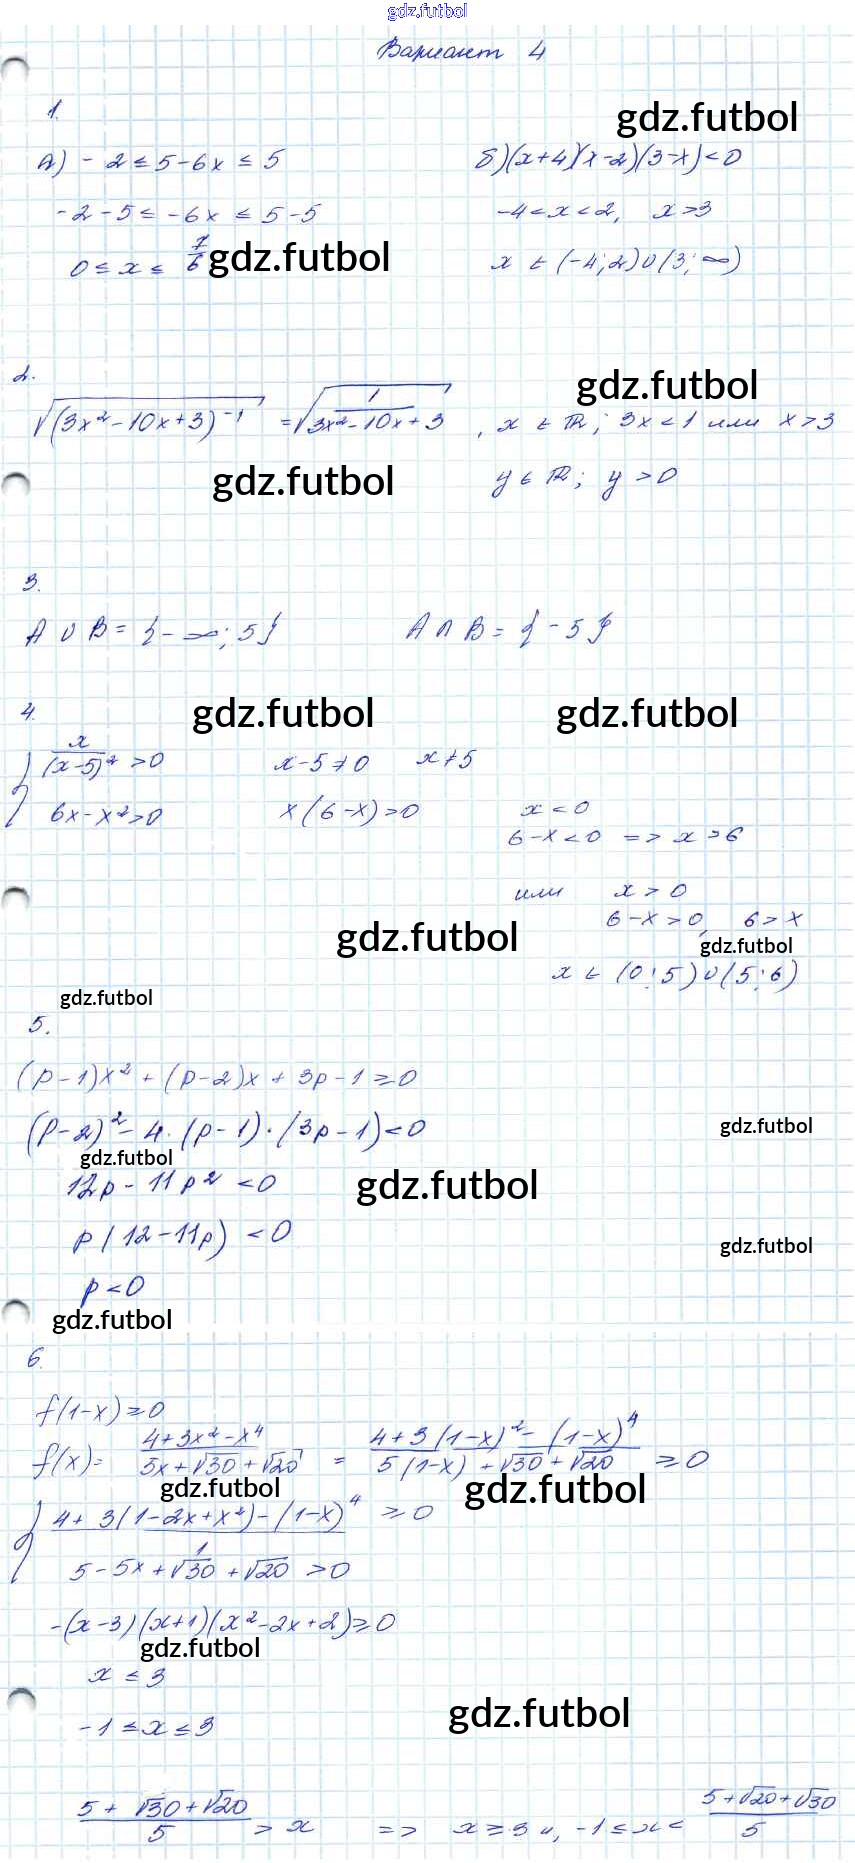 gdz.futbol
Вариант 4
1.
gdz.futbol
А) -2 ≤ 5-6x ≤ 5
б) (x+4)(x-2)(3-x)<0
-2-5 ≤ -6x ≤ 5-5
-4<x<2, x>3
0 ≤ x ≤ 7/6
gdz.futbol
x ∈ (-4;2)∪(3;∞)
2.
gdz.futbol
√(3x²-10x+3)⁻¹ = √1/(3x²-10x+3), x ∈ ℝ; 3x<1 или x>3
gdz.futbol
y ∈ ℝ; y>0
3.
A ∪ B = {-∞; 5} A ∩ B = {-5}
4.
gdz.futbol
gdz.futbol
{ x/(x-5)² >0 x-5≠0 x≠5
6x-x²>0 x(6-x)>0 x<0
6-x<0 => x>6
или x>0
6-x>0, 6>x
gdz.futbol
gdz.futbol
x ∈ (0;5)∪(5;6)
gdz.futbol
5.
(p-1)x² + (p-2)x + 3p-1 ≥ 0
gdz.futbol
(p-2)² - 4·(p-1)·(3p-1)<0
gdz.futbol
12p - 11p² <0
gdz.futbol
p(12-11p) <0
gdz.futbol
p<0
gdz.futbol
6.
f(1-x) ≥ 0
f(x) = (4+3x²-x⁴)/(5x+√30+√20) = (4+3(1-x)²-(1-x)⁴)/(5(1-x)+√30+√20) ≥ 0
gdz.futbol
gdz.futbol
{ (4+3(1-2x+x²)-(1-x)⁴)/1 ≥ 0
5-5x+√30+√20 >0
-(x-3)(x+1)(x²-2x+2) ≥ 0
gdz.futbol
x ≤ 3
gdz.futbol
-1 ≤ x ≤ 3
(5+√30+√20)/5 > x => x ≥ 3 и, -1 ≤ x < (5+√20+√30)/5